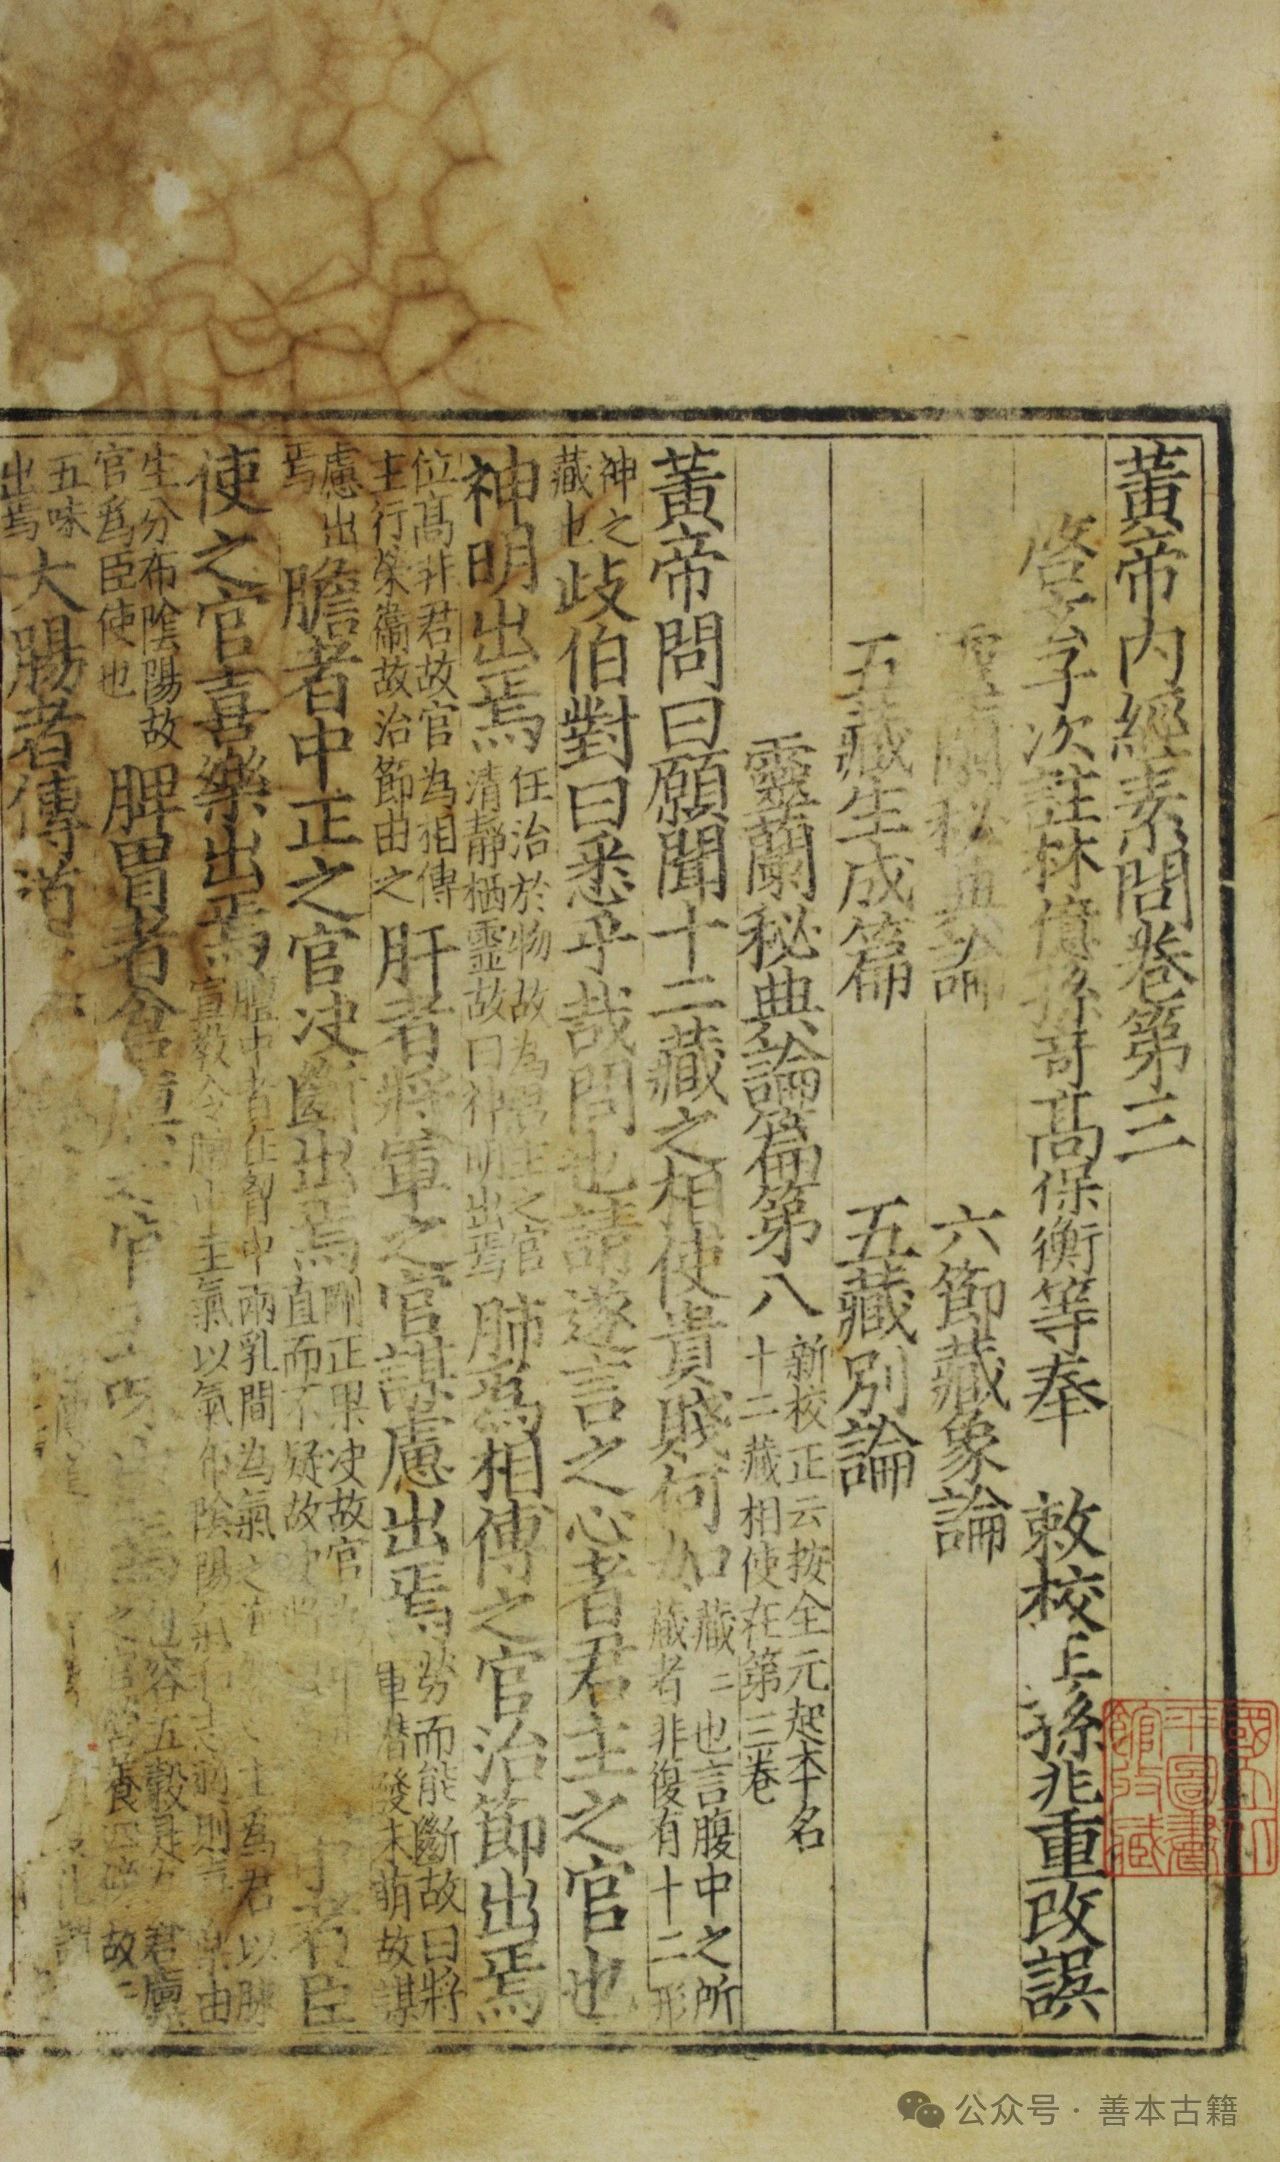 黃帝內經素問卷第三
啓玄子次註林億孫奇高保衡等奉 敕校正孫兆重改誤
靈蘭秘典論 六節藏象論
五藏生成篇 五藏別論
靈蘭秘典論篇第八 新校正云按全元起本名十二藏相使在第三卷
黃帝問曰願聞十二藏之相使貴賤何如 藏藏也言腹中之所藏者非復有十二形
神之藏也 歧伯對曰悉乎哉問也請遂言之心者君主之官也
神明出焉 任治於物故為君主之官清靜栖靈故曰神明出焉 肺爲相傅之官治節出焉
位高非君故官為相傅主行榮衞故治節由之 肝者將軍之官謀慮出焉 勇而能斷故曰將軍潛發未萌故謀
慮出焉 膽者中正之官决斷出焉 剛正果决故官直而不疑故决 者臣
使之官喜樂出焉 膻中者在胷中兩乳間為氣之 主為君以 宣教令膻中主氣以氣布陰陽 則喜樂由
生分布陰陽故官爲臣使也 脾胃者倉廩之官五味出焉 包容五穀是為倉廩之官營養四 故云
五味出焉 大腸者傳道
國立北平圖書館收藏
公众号·善本古籍